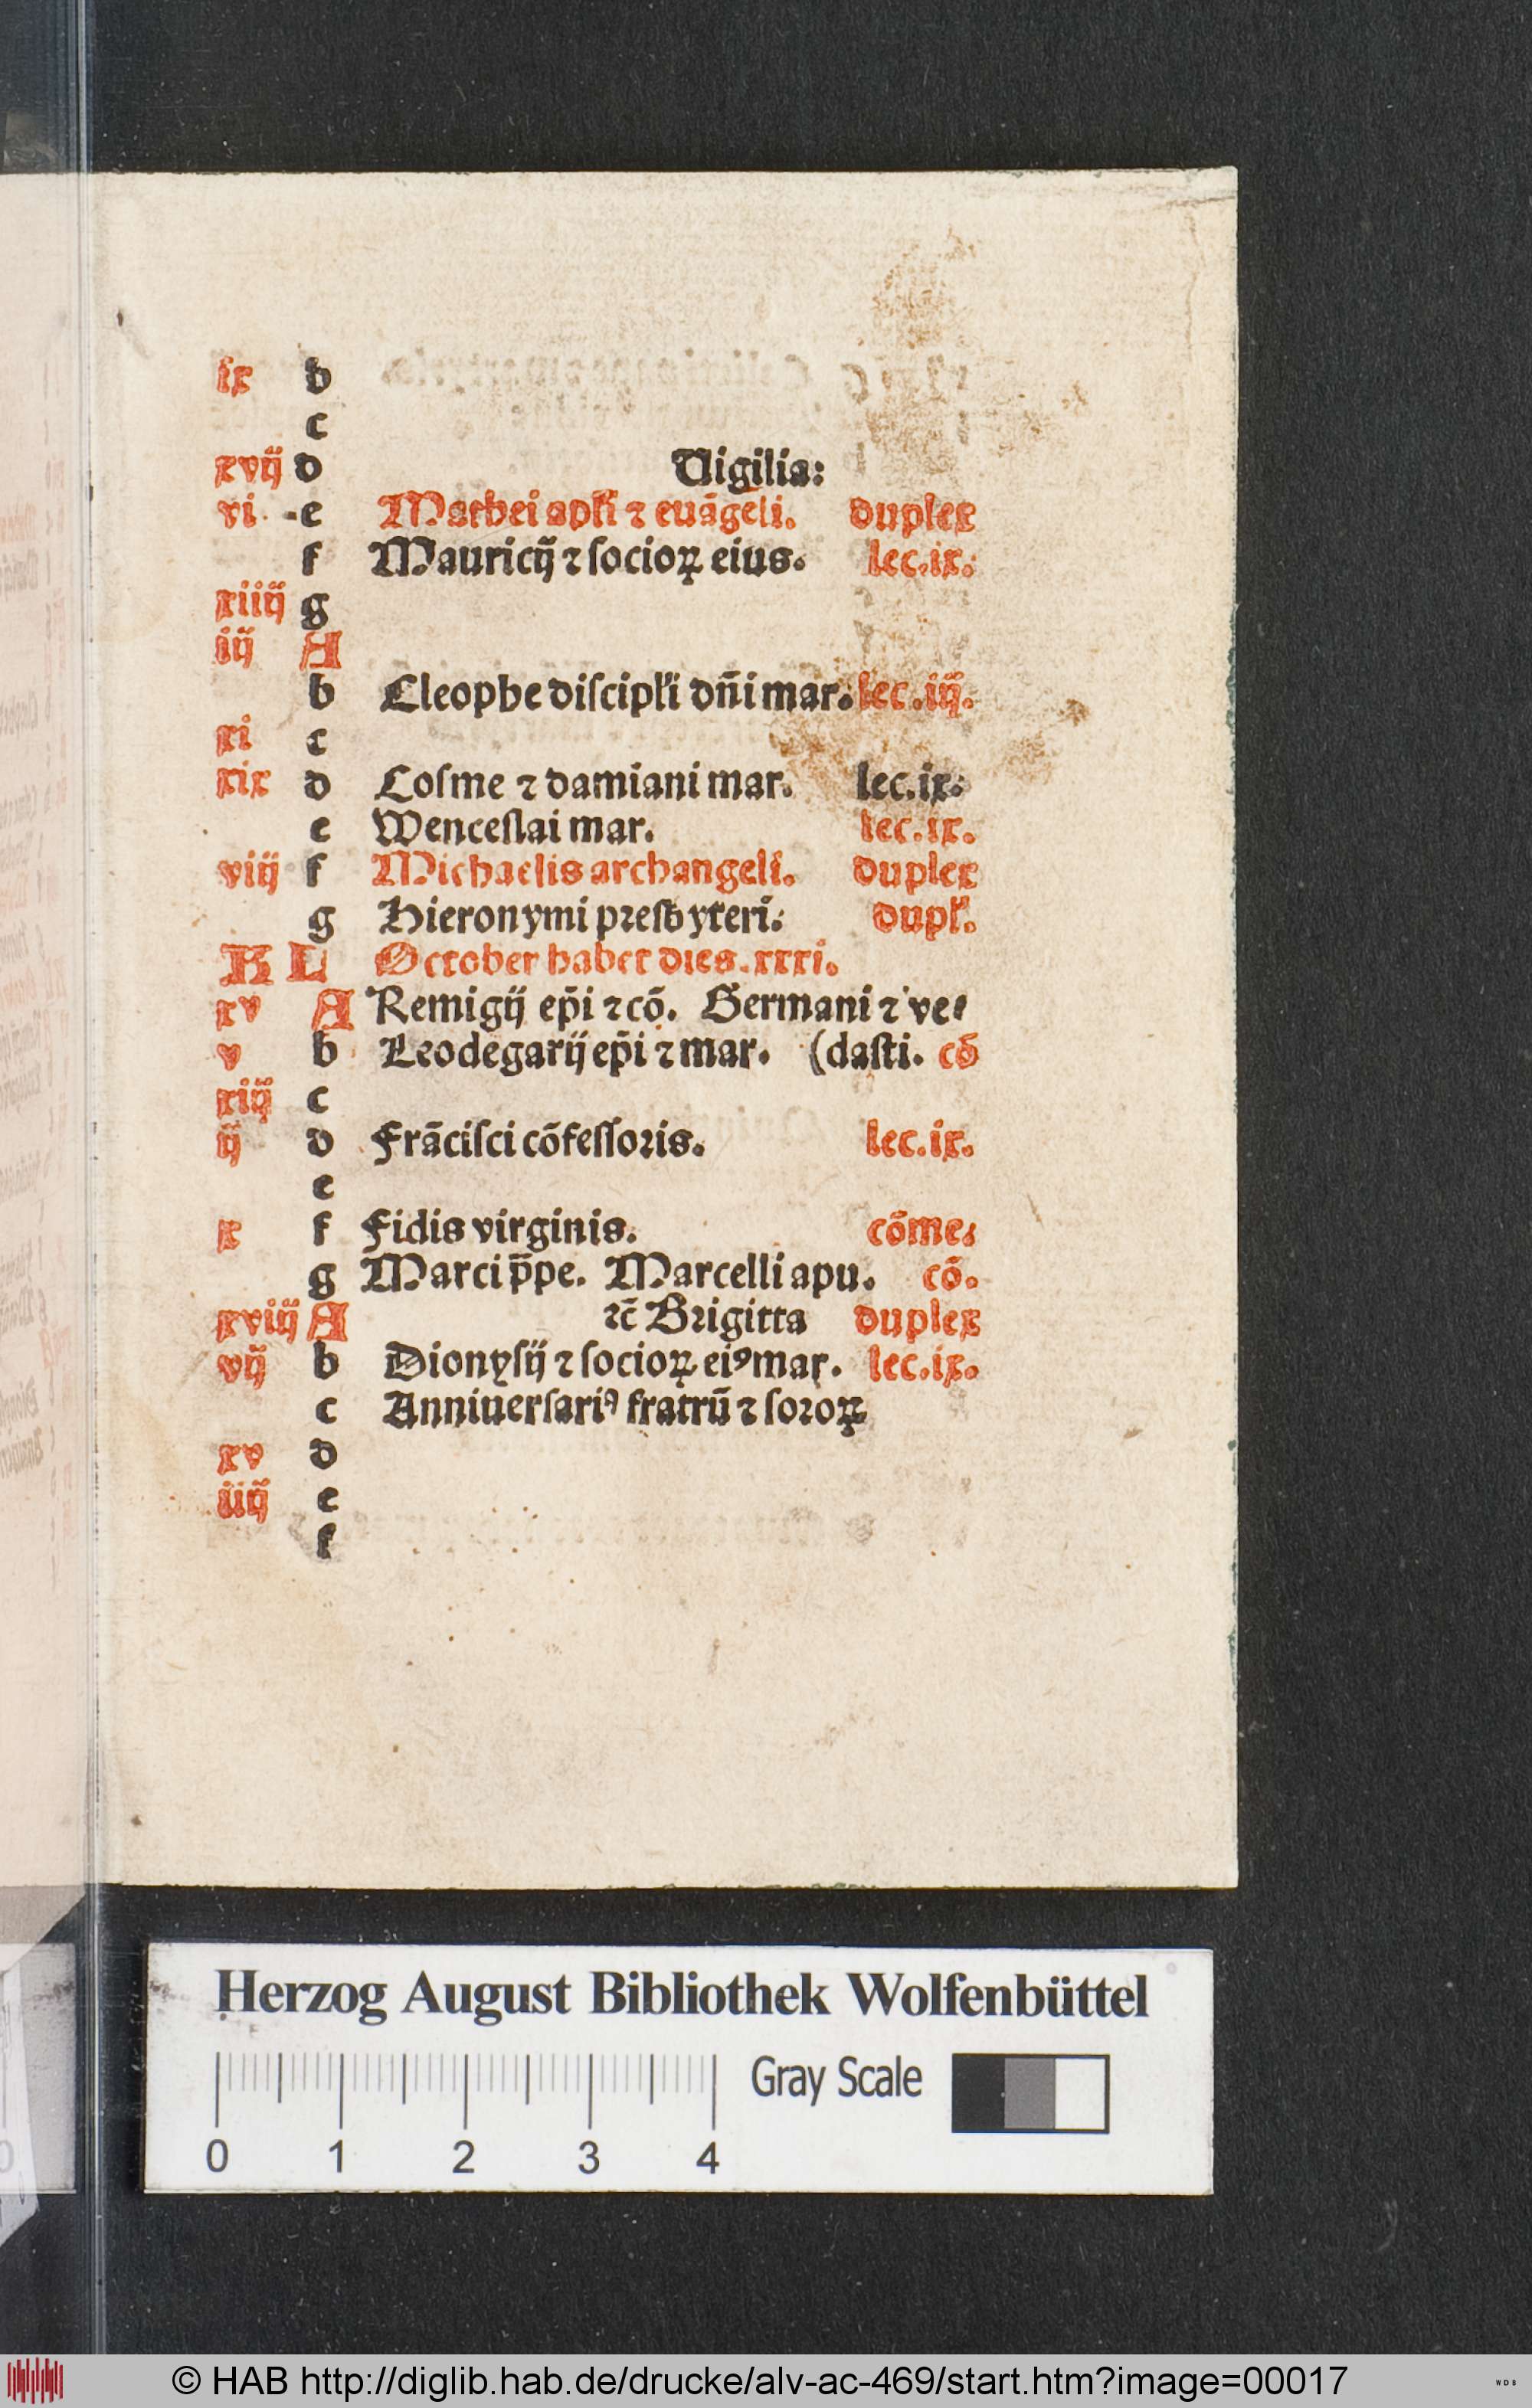 ix b
c
xvij d Vigilia:
vi e Mathei apłi ⁊ euāgeli. duplex
f Mauricij ⁊ ſocioꝝ eius. lec.ix.
xiiij g
iij A
b Cleophe diſcipłi dn̄i mar. lec.iij.
xi c
xix d Coſme ⁊ damiani mar. lec.ix.
e Wenceſlai mar. lec.ix.
viij f Michaelis archangeli. duplex
g Hieronymi pꝛeſbyteri. dupł.
K L October habet dies.xxxi.
xv A Remigij ep̄i ⁊ cō. Germani ⁊ ve⸗
v b Leodegarij ep̄i ⁊ mar. (daſti. cō
xiij c
ij d Frāciſci cōfeſſoꝛis. lec.ix.
e
x f Fidis virginis. cōme.
g Marci p̄pe. Marcelli apu. cō.
xviij A ⁊c̄ Bꝛigitta duplex
vij b Dionyſij ⁊ ſocioꝝ eiꝰ mar. lec.ix.
c Anniuerſariꝰ fratrū ⁊ ſoꝛoꝝ
xv d
iiij e
f
Herzog August Bibliothek Wolfenbüttel
Gray Scale
0 1 2 3 4
© HAB http://diglib.hab.de/drucke/alv-ac-469/start.htm?image=00017